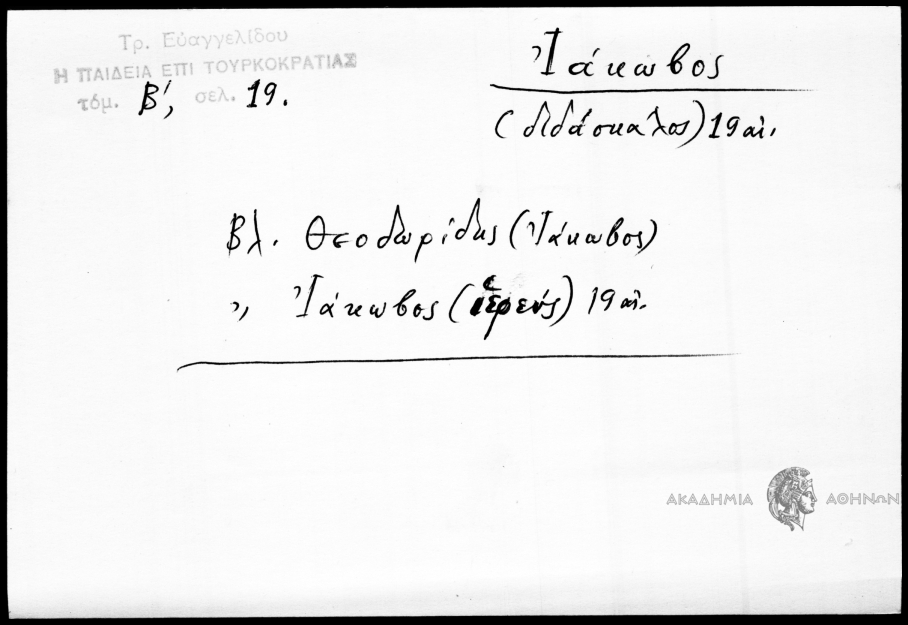 Τρ. Εὐαγγελίδου
Η ΠΑΙΔΕΙΑ ΕΠΙ ΤΟΥΡΚΟΚΡΑΤΙΑΣ
τόμ. Β', σελ. 19.
Ἰάκωβος
(διδάσκαλος) 19 αἰ.
Βλ. Θεοδωρίδης (Ἰάκωβος)
〃 Ἰάκωβος (ἱερεύς) 19 αἰ.
ΑΚΑΔΗΜΙΑ ΑΘΗΝΩΝ